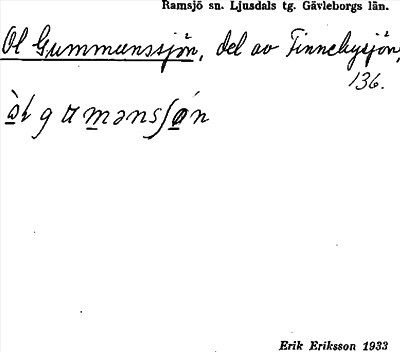 Ramsjö sn. Ljusdals tg. Gävleborgs län.
Ol Gummunssjön, del av Finnebysjön,
136.
Erik Eriksson 1933